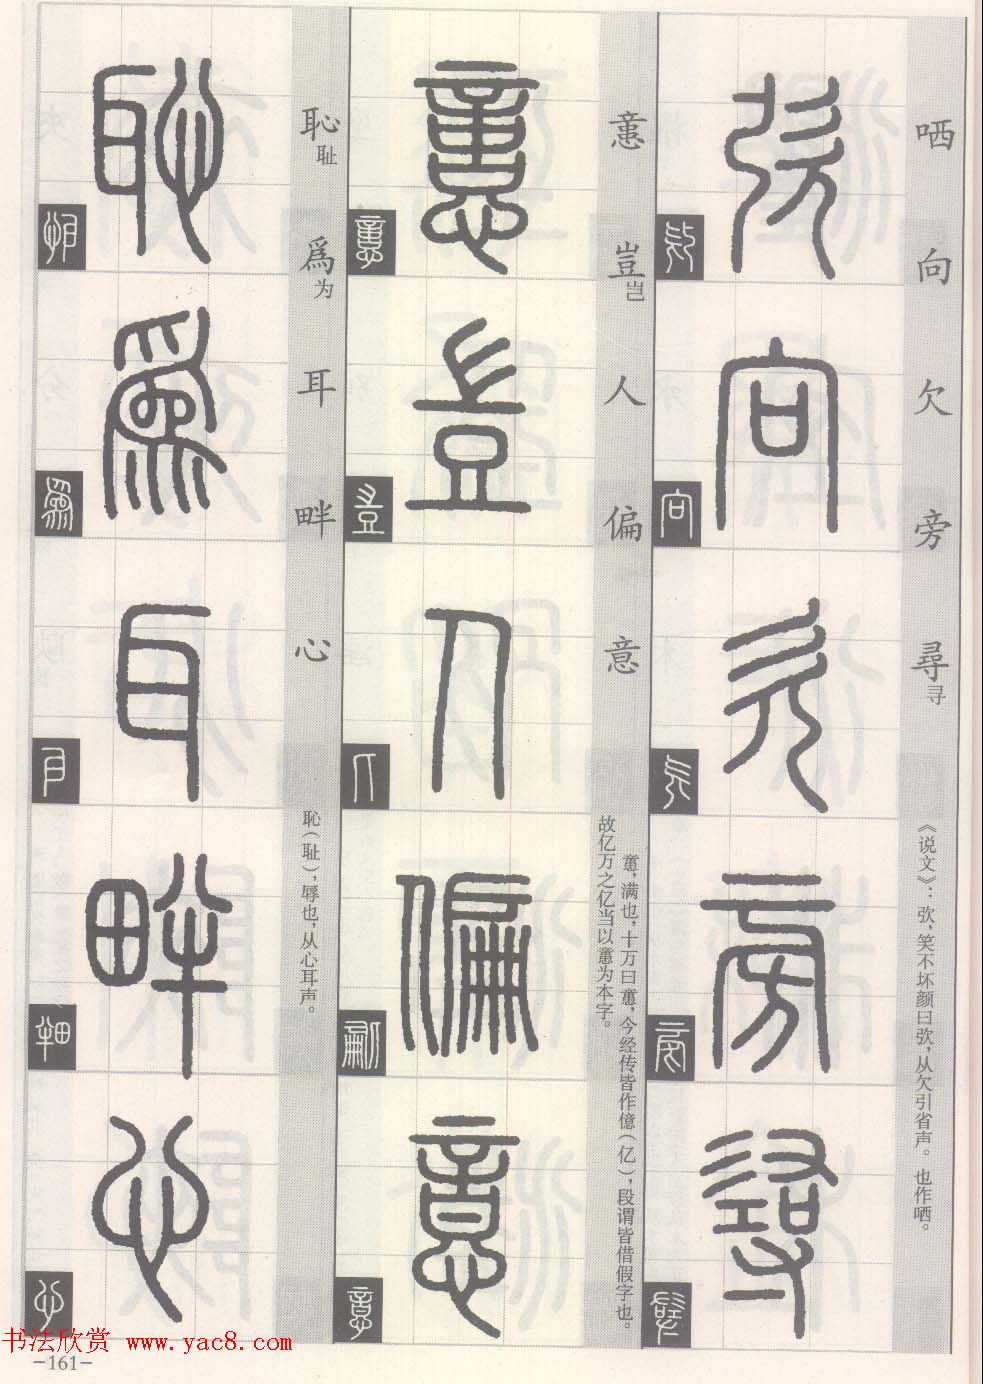 哂向欠旁尋寻
《说文》：弞，笑不坏颜曰弞，从欠引省声。也作哂。
弞向欠旁尋
𢡃豈岂人偏意
𢡃，满也，十万曰𢡃，今经传皆作億（亿），段谓皆借假字也。
故亿万之亿当以𢡃为本字。
𢡃豈人偏意
恥耻爲为耳畔心
恥（耻），辱也，从心耳声。
恥爲耳畔心
书法欣赏 www.yac8.com
-161-